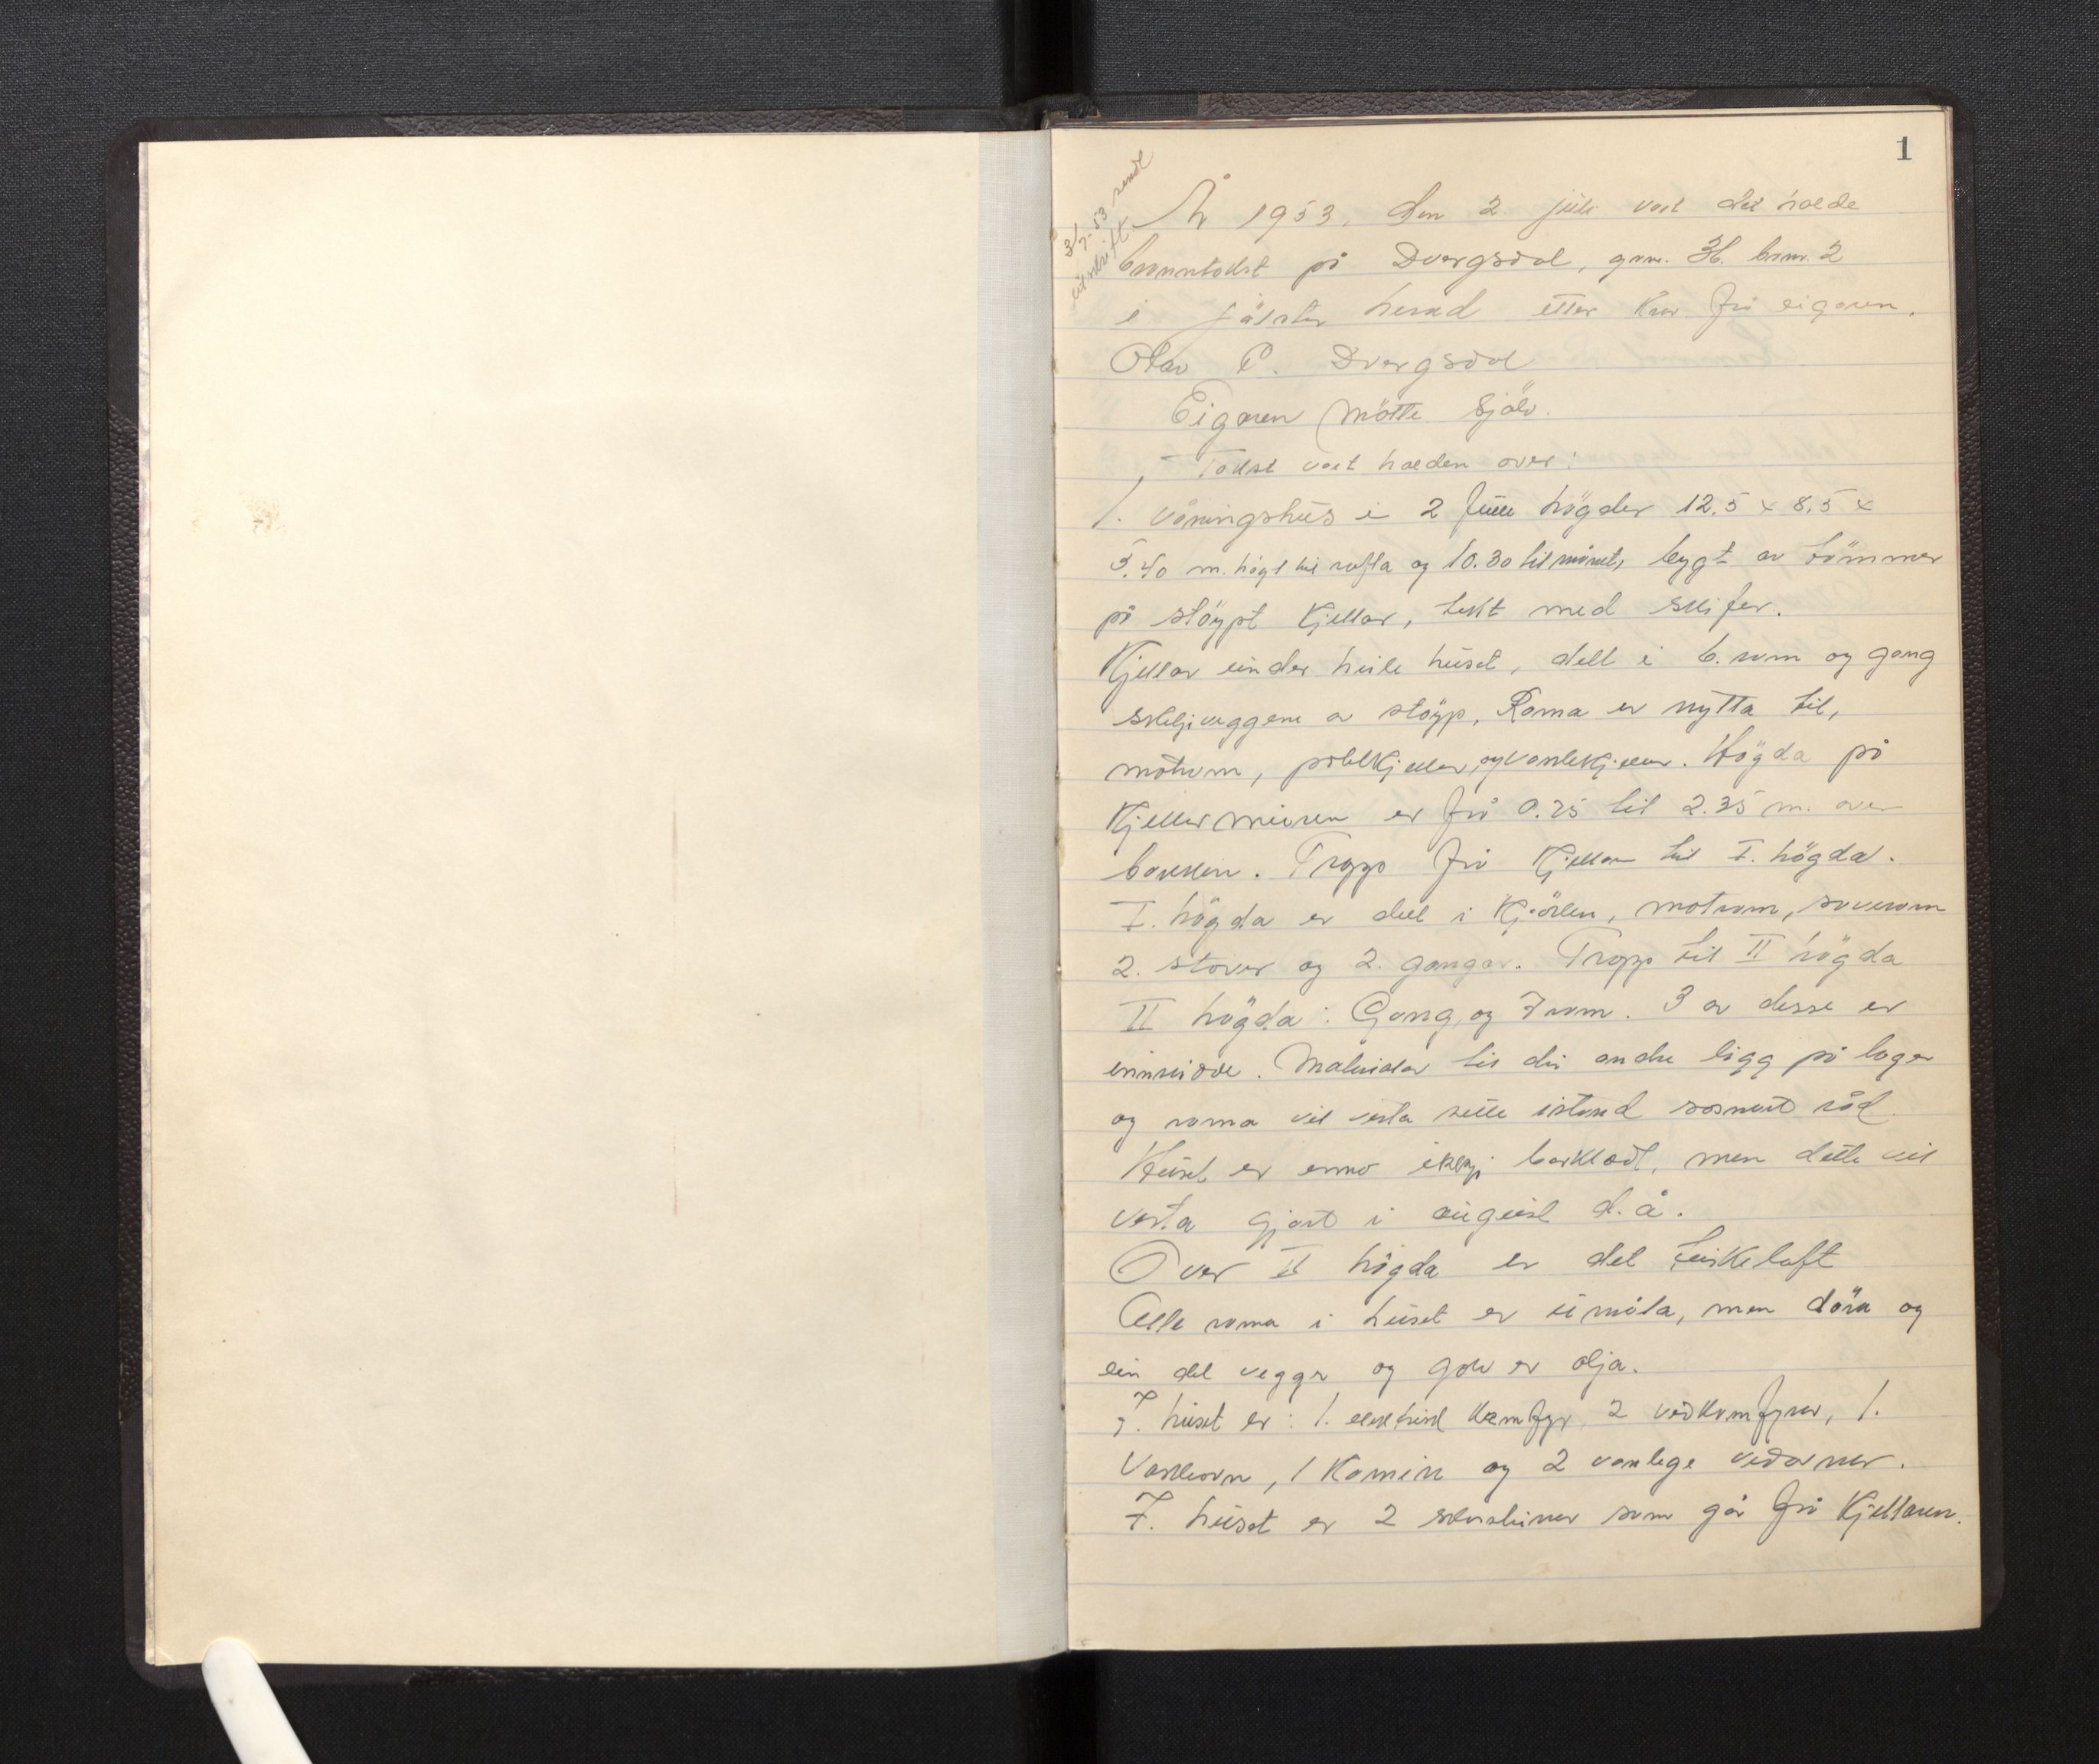 1
3/7-53 sendt
utskrift.
År 1953, den 2. juli vart det halde
branntakst på Dvergsdal, gnr. 36. bnr. 2
i Jölster herad etter krav frå eigaren,
Olav P. Dvergsdal
Eigaren mötte sjölv.
Takst vart halden over:
1. Våningshus i 2 fulle högder 12.5 x 8.5 x
5.40 m. högt til rafta og 10.30 til mönet, bygt av tömmer
på stöypt kjellar, tekt med skifer.
Kjellar under heile huset, delt i 6. rom og gang
skiljeveggene av stöyp, Roma er nytta til,
matrom, potetkjellar, og vaskekjellar. Högda på
kjellarmuren er frå 0.25 til 2.35 m. over
bakken. Trapp frå kjellar til I. högda.
I. högda er delt i kjöken, matrom, soverom
2. stover og 2. gangar. Trapp til II högda
II högda: Gang og 7 rom. 3 av desse er
innreidde. Materialar til dei andre ligg på lager
og roma vil verta sette istand snarast råd.
Huset er enno ikkje borkledt, men dette vil
verta gjort i august d.å.
Over II högda er det turkeloft
Alle roma i huset er umåla, men döra og
ein del veggr og golv er olja.
I. huset er: 1. elektrisk komfyr, 2 vedkomfyrar, 1.
Vaskeovn, 1 Kamin og 2 vanlege vedovner.
I. huset er 2 skorsteiner som går frå kjellaren.